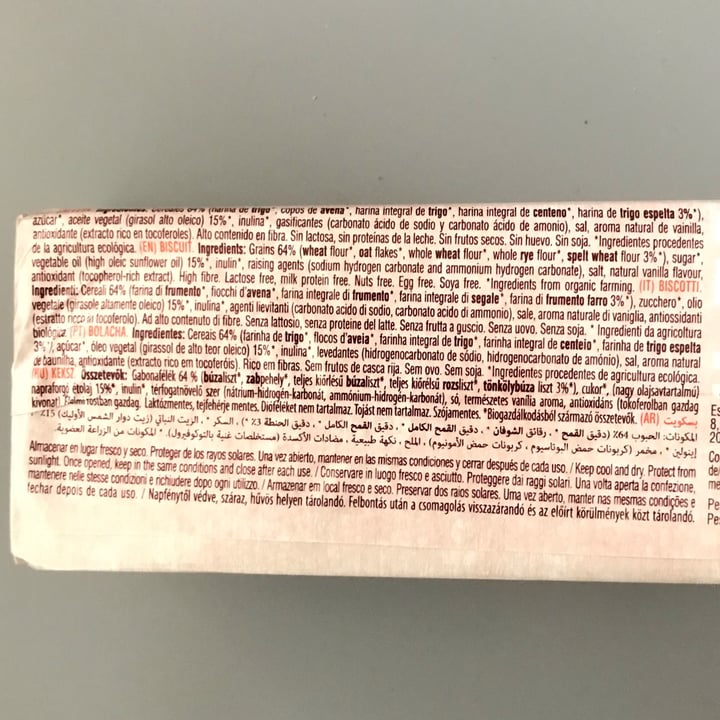 Ingredientes: Cereales 64% (harina de trigo*, copos de avena*, harina integral de trigo*, harina integral de centeno*, harina de trigo espelta 3%*),
azúcar*, aceite vegetal (girasol alto oleico) 15%*, inulina*, gasificantes (carbonato ácido de sodio y carbonato ácido de amonio), sal, aroma natural de vainilla,
antioxidante (extracto rico en tocoferoles). Alto contenido en fibra. Sin lactosa, sin proteínas de la leche. Sin frutos secos. Sin huevo. Sin soja. *Ingredientes procedentes
de la agricultura ecológica. (EN) BISCUIT. Ingredients: Grains 64% (wheat flour*, oat flakes*, whole wheat flour*, whole rye flour*, spelt wheat flour 3%*), sugar*,
vegetable oil (high oleic sunflower oil) 15%*, inulin*, raising agents (sodium hydrogen carbonate and ammonium hydrogen carbonate), salt, natural vanilla flavour,
antioxidant (tocopherol-rich extract). High fibre. Lactose free, milk protein free. Nuts free. Egg free. Soya free. *Ingredients from organic farming. (IT) BISCOTTI.
Ingredienti: Cereali 64% (farina di frumento*, fiocchi d'avena*, farina integrale di frumento*, farina integrale di segale*, farina di frumento farro 3%*), zucchero*, olio
vegetale (girasole altamente oleico) 15%*, inulina*, agenti lievitanti (carbonato acido di sodio, carbonato acido di ammonio), sale, aroma naturale di vaniglia, antiossidanti
(estratto ricco in tocoferolo). Ad alto contenuto di fibre. Senza lattosio, senza proteine del latte. Senza frutta a guscio. Senza uovo. Senza soja. * Ingredienti da agricoltura
biológica. (PT) BOLACHA. Ingredientes: Cereais 64% (farinha de trigo*, flocos d'aveia*, farinha integral de trigo*, farinha integral de centeio*, farinha de trigo espelta
3%*), açúcar*, óleo vegetal (girassol de alto teor oleico) 15%*, inulina*, levedantes (hidrogenocarbonato de sódio, hidrogenocarbonato de amónio), sal, aroma natural
de baunilha, antioxidante (extracto rico em tocoferóis). Rico em fibras. Sem frutos de casca rija. Sem ovo. Sem soja. *Ingredientes procedentes de agricultura ecológica.
(HU) KEKSZ. Összetevők: Gabonafélék 64 % (búzaliszt*, zabpehely*, teljes kiőrlésű búzaliszt*, teljes kiőrlésű rozsliszt*, tönkölybúza liszt 3%*), cukor*, (nagy olajsavtartalmú)
napraforgó étolaj 15%*, inulin*, térfogatnövelő szer (nátrium-hidrogén-karbonát, ammónium-hidrogén-karbonát), só, természetes vanília aroma, antioxidáns (tokoferolban gazdag
kivonat). Élelmi rostban gazdag. Laktózmentes, tejfehérje mentes. Dióféléket nem tartalmaz. Tojást nem tartalmaz. Szójamentes. *Biogazdálkodásból származó összetevők. (AR) بسكويت
المكونات: الحبوب 64% (دقيق القمح*، رقائق الشوفان*، دقيق القمح الكامل*، دقيق القمح الكامل*، دقيق الحنطة 3%*)، السكر*، الزيت النباتي (زيت دوار الشمس الأوليك) 15%*،
إينولين*، مخمر (كربونات حمض البوتاسيوم، كربونات حمض الأمونيوم)، الملح، نكهة طبيعية، مضادات الأكسدة (مستخلصات غنية بالتوكوفيرول). * المكونات من الزراعة العضوية.
Almacenar en lugar fresco y seco. Proteger de los rayos solares. Una vez abierto, mantener en las mismas condiciones y cerrar después de cada uso. / Keep cool and dry. Protect from
sunlight. Once opened, keep in the same conditions and close after each use. / Conservare in luogo fresco e asciutto. Proteggere dai raggi solari. Una volta aperta la confezione,
mantenere nelle stesse condizioni e richiudere dopo ogni utilizzo. / Armazenar em local fresco e seco. Preservar dos raios solares. Uma vez aberto, manter nas mesmas condições e
fechar depois de cada uso. / Napfénytől védve, száraz, hűvös helyen tárolandó. Felbontás után a csomagolás visszazárandó és az előírt körülmények közt tárolandó.